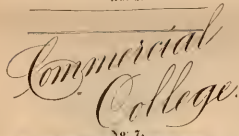 Commercial
College.
No. 7.